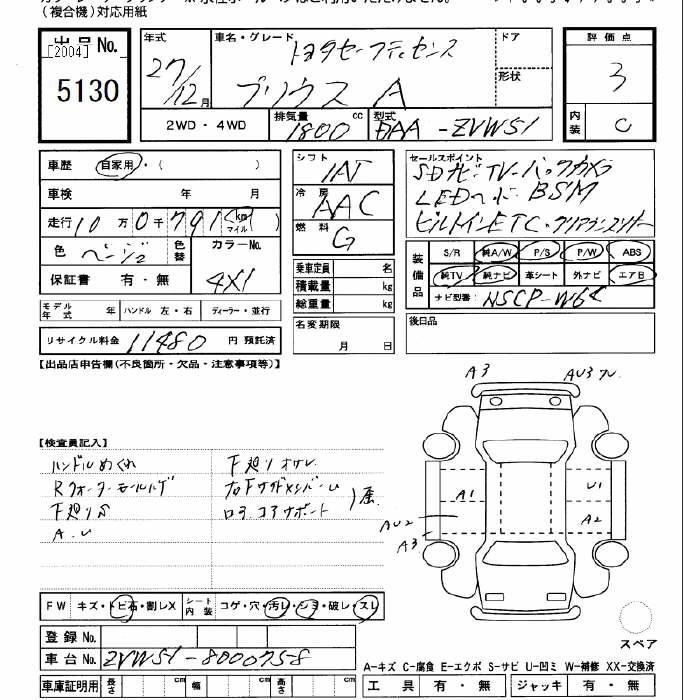 (複合機)対応用紙
出品No.
[2004]
5130
年式
27/12月
車名・グレード
トヨタセーフティセンス
プリウス A
ドア
形状
評価点
3
内装
C
2WD・4WD
排気量
1800 cc
型式
DAA-ZVW51
車歴 自家用・( )
車検 年 月
走行 10万0千791 km マイル
色 ベージュ
色替
カラーNo.
4X1
保証書 有・無
モデル年式 年 ハンドル 左・右 ディーラー・並行
リサイクル料金 11480円 預託済
シフト
IAT
冷房
AAC
燃料
G
乗車定員 名
積載量 kg
総重量 kg
名変期限
月 日
セールスポイント
SDナビTV-バックカメラ
LEDヘッド BSM
ビルトインETC・クリアランスソナー
装備品
S/R 純A/W P/S P/W ABS
純TV 純ナビ 革シート 外ナビ エアB
ナビ型番 NSCP-W64
後日品
【出品店申告欄(不良箇所・欠品・注意事項等)】
【検査員記入】
ハンドルめくれ
Rクォーターモールハゲ
F廻りキズ
A.U
F廻りオサレ
右Fサイドメンバーム
コアサポート
A3
AU3
A1
U1
AU2
A2
A3
FW キズ・トビ石・割レX シート内装 コゲ・穴・汚レ・シミ・破レ・スレ
登録No.
車台No. ZVW51-8000758
車庫証明用 長さ cm 幅 cm 高さ cm
スペア
A-キズ C-腐食 E-エクボ S-サビ U-凹ミ W-補修 XX-交換済
工具 有・無 ジャッキ 有・無